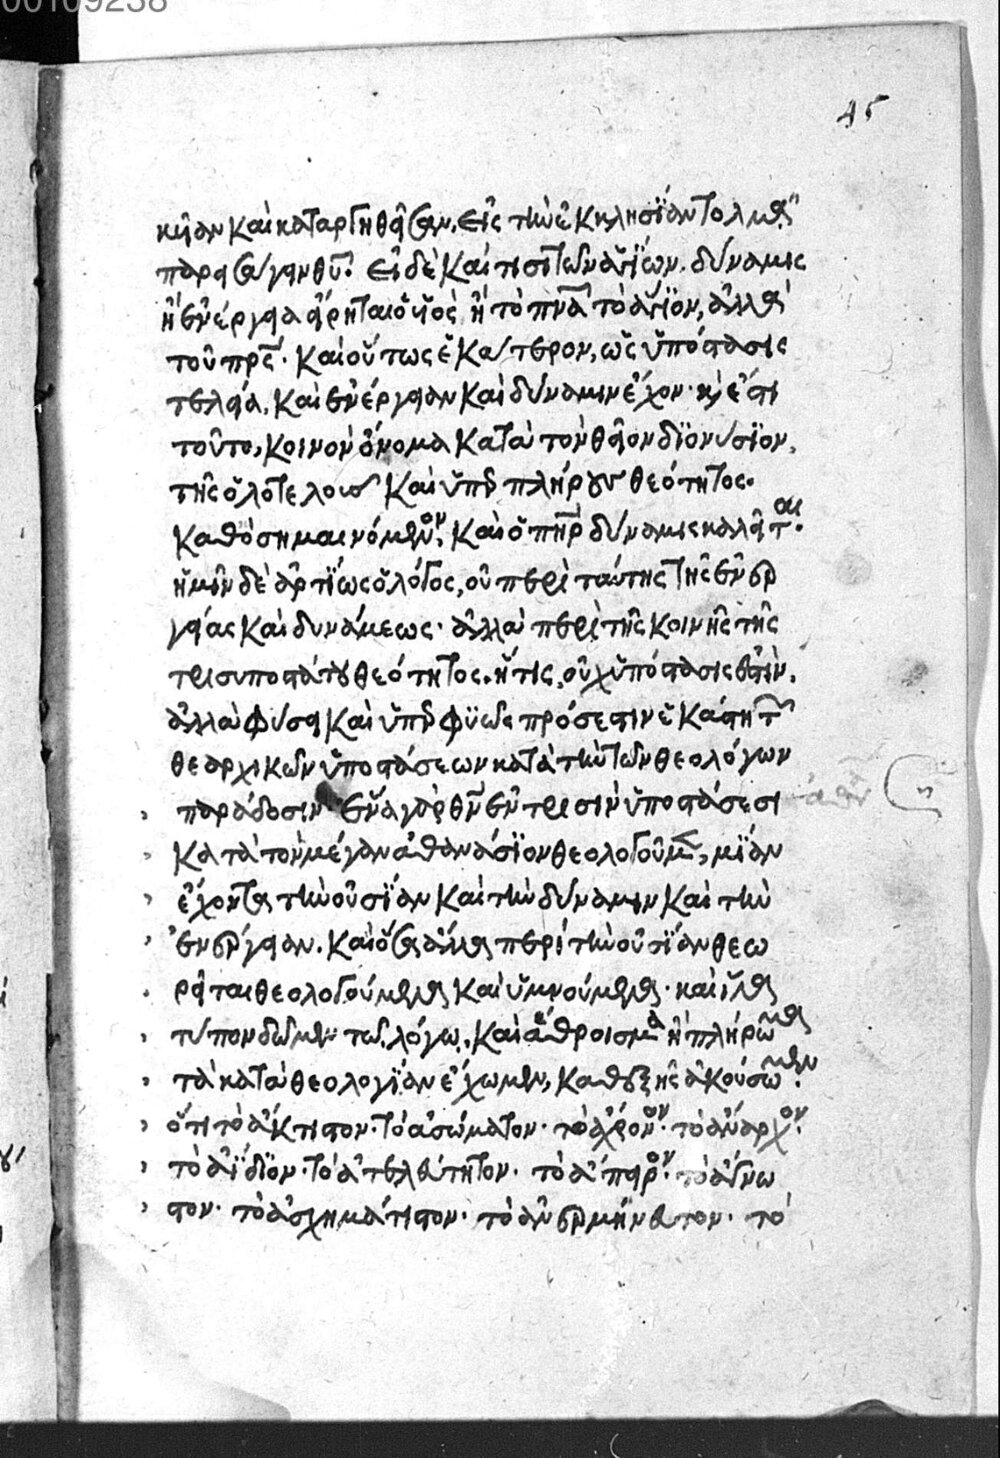 00109238
45
κιαν καὶ καταργηθεῖσαν, εἰς τὴν ἐκκλησΐαν τολμᾶ
παρεισάγειν θῦ. εἰ δὲ καί τισι τῶν ἁγΐων. δύναμις
ἢ ἐνέργεια εἴρηται ὁ υἱὸς ἢ τὸ πνᾶ τὸ ἅγϊον, ἀλλὰ
τοῦ πρς. καὶ οὕτως ἑκάτερον, ὡς ὑπόστασις
τελεία. καὶ ἐνέργειαν καὶ δύναμιν ἔχον. κỳ ἔστι
τοῦτο, κοινὸν ὄνομα κατὰ τὸν θεῖον διονύσϊον,
τῆς ὁλοτελοῦς καὶ ὑπὲρ πλήρους θεότητος.
καθὸ σημαινόμενον, καὶ ὁ πηρ δύναμις καλεῖται.
ἡμῖν δὲ ἀρτΐως ὁ λόγος, οὐ περὶ ταύτης τῆς ἐνερ
γείας καὶ δυνάμεως. ἀλλὰ περὶ τῆς κοινῆς τῆς
τρισυποστάτου θεότητος. ἥτις, οὐχ ὑπόστασις ἐστὶν.
ἀλλὰ φύσει καὶ ὑπὲρ φϋῶς πρόσεστιν ἑκάστῃ τ
θεαρχικῶν ὑποστάσεων κατὰ τὴν τῶν θεολόγων
παράδοσιν ἕνα γὰρ θν ἐν τρισὶν ὑποστάσεσι
κατὰ τὸν μέγαν ἀθανάσϊον θεολογοῦμ, μΐαν
ἔχοντα τὴν οὐσΐαν καὶ τὴν δύναμιν καὶ τὴν
ἐνέργειαν. καὶ ὅσα ἄλλα περὶ τὴν οὐσΐαν θεω
ρεῖται θεολογούμενα καὶ ὑμνούμενα. καὶ ἵνα
τύπον δῶμεν τῷ λόγῳ. καὶ ἄθροισμα ἢ πλήρωμα
τὰ κατὰ θεολογΐαν ἔχωμεν, καθεξῆς ἀκούσωμεν.
ὅτι τὸ ἄκτιστον. τὸ ἀσώματον. τὸ ἄχρονον. τὸ ἄναρχον.
τὸ ἀΐδϊον. τὸ ἀτελεύτητον. τὸ ἄπειρον. τὸ ἄγνω
στον. τὸ ἀσχημάτιστον. τὸ ἀνερμήνευτον. τὸ